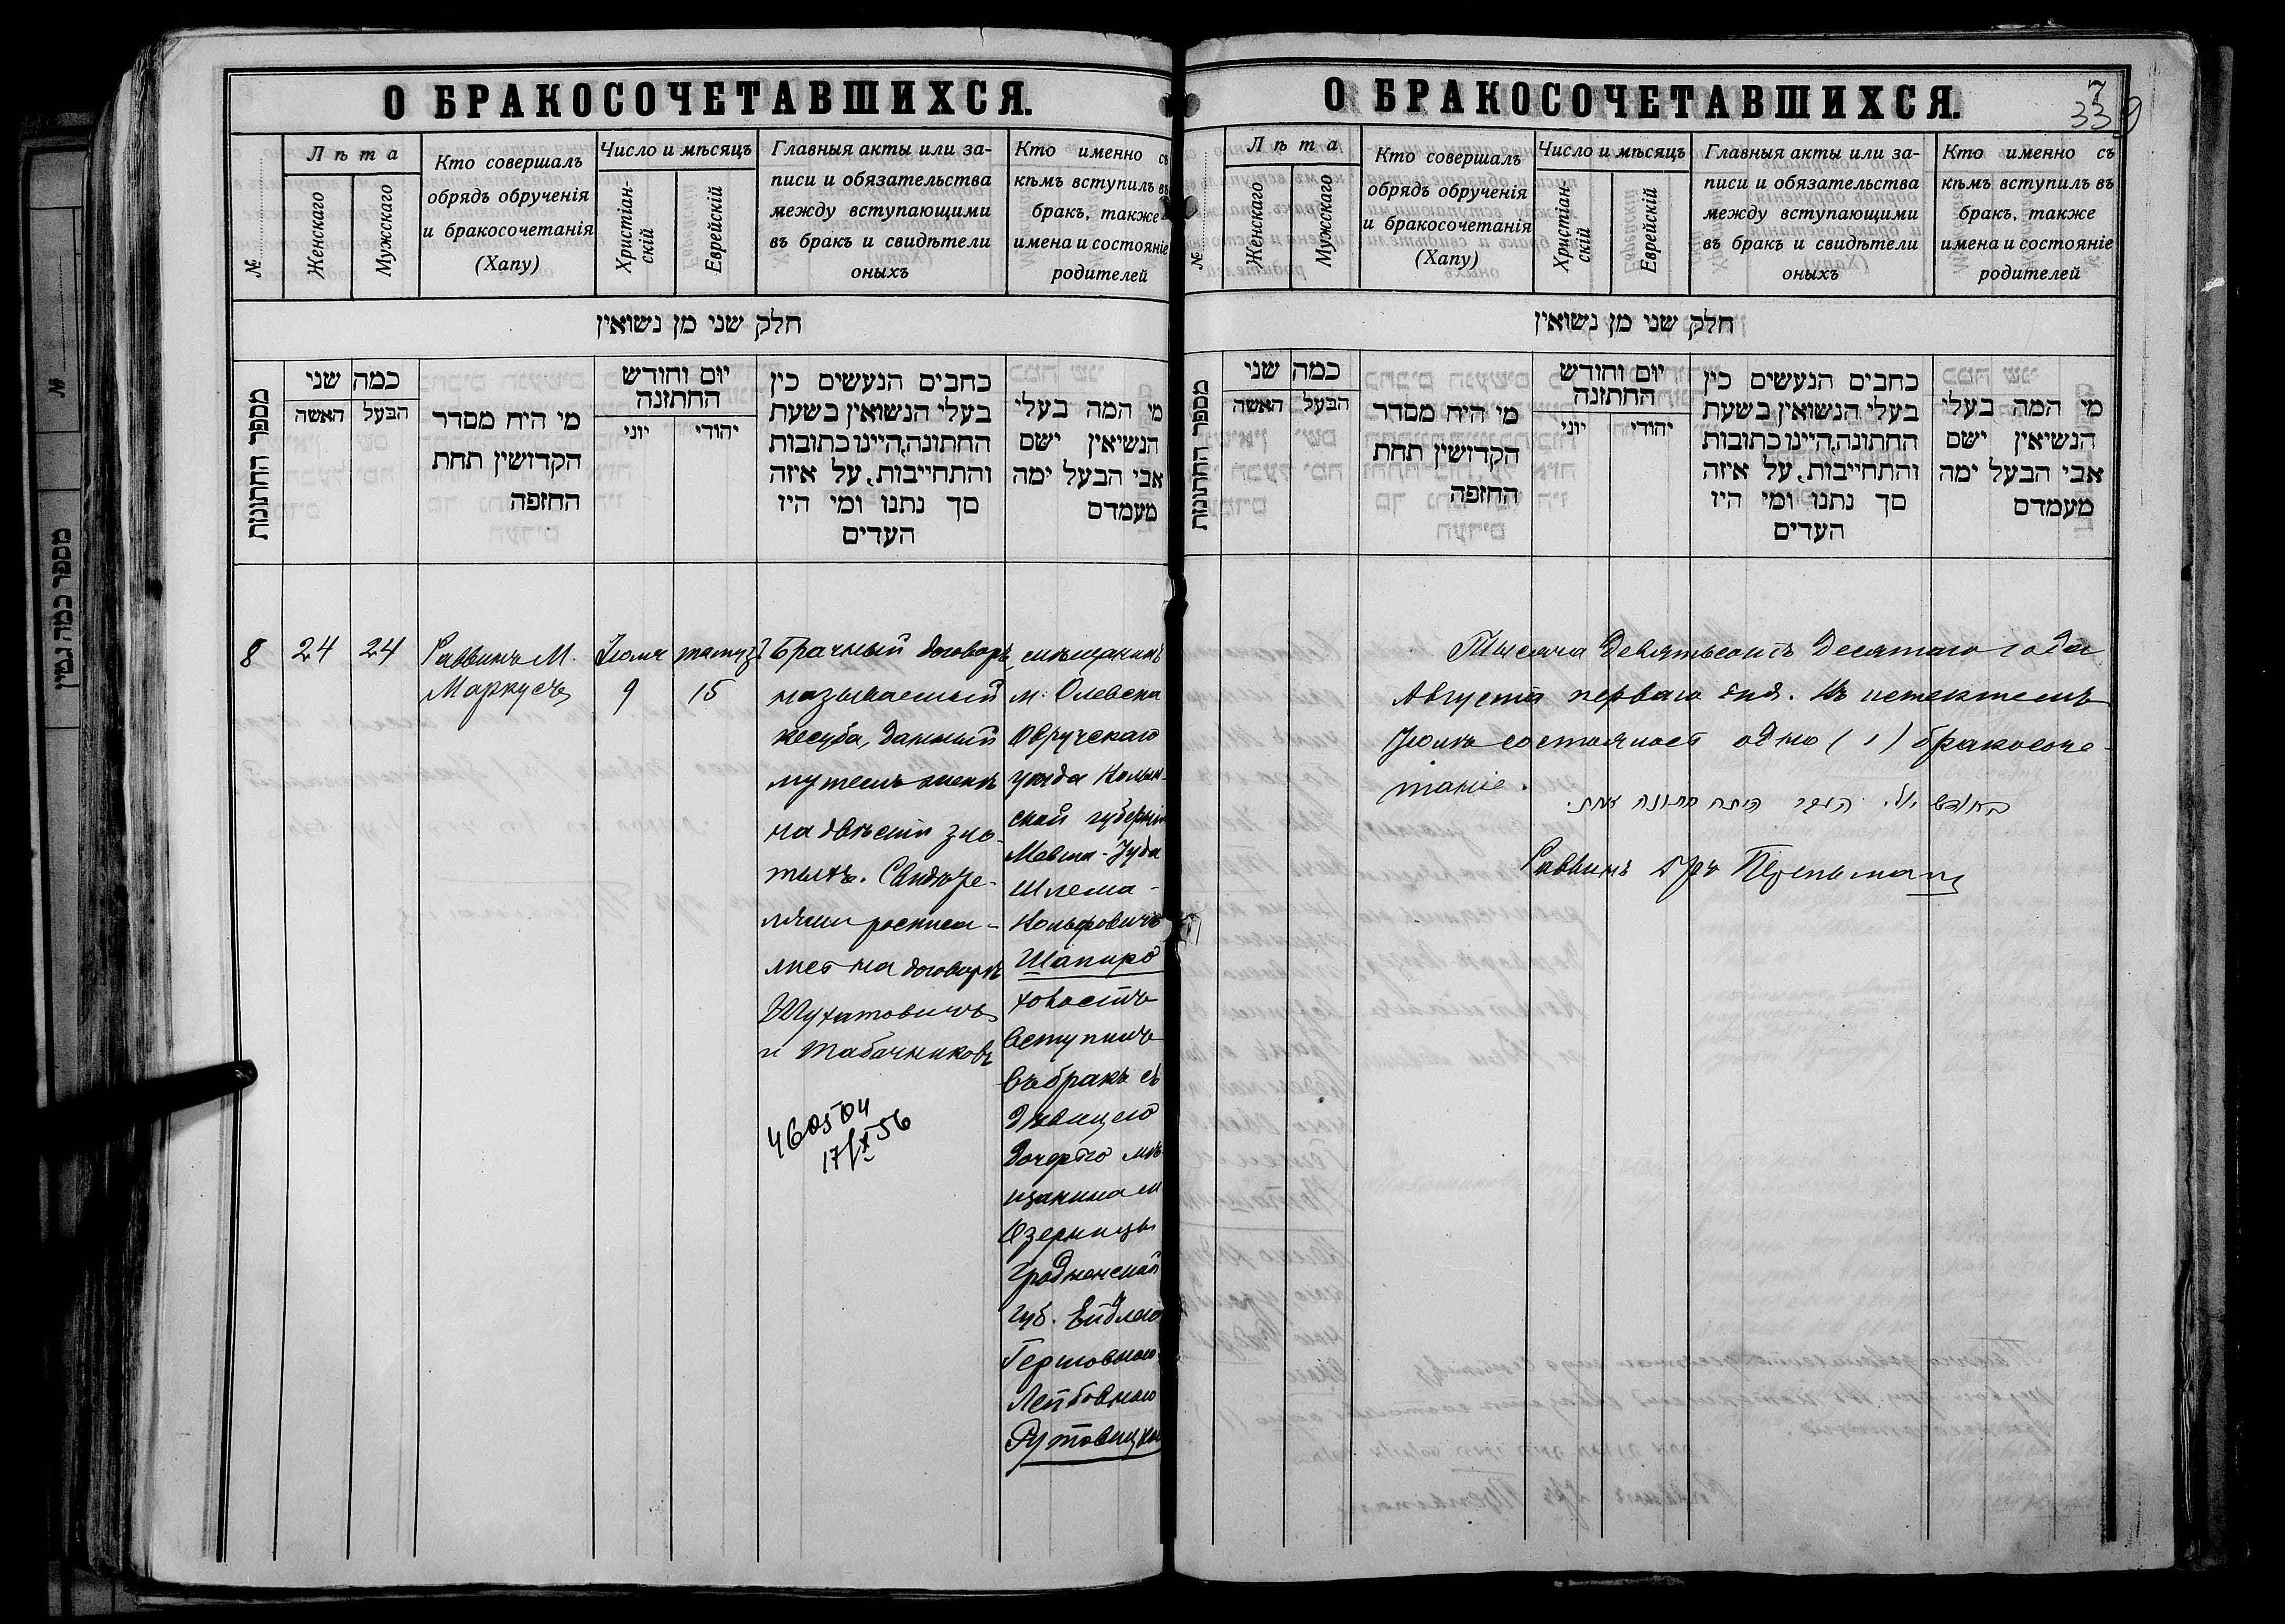 О БРАКОСОЧЕТАВШИХСЯ.
№
Лѣта
Женскаго
Мужскаго
Кто совершалъ
обрядъ обрученія
и бракосочетанія
(Хапу)
Число и мѣсяцъ
Христіан-
скій
Еврейскій
Главныя акты или за-
писи и обязательства
между вступающими
въ бракъ и свидѣтели
оныхъ
Кто именно съ
кѣмъ вступилъ въ
бракъ, также
имена и состояніе
родителей
חלק שני מן נשואין
מספר החתונות
כמה שני
האשה
הבעל
מי היח מסדר
הקדושין תחת
החזפה
יום וחודש
החתזנה
יוני
יהודי
כחבים הנעשים כין
בעלי הנשואין בשעת
החתונה,היינו כתובות
והתחייבות, על איזה
סך נתנו ומי היו
העדים
מי המה בעלי
הנשיאין ישם
אבי הבעל ימה
מעמדם
8
24
24
Раввинъ М.
Маркусъ
Іюля
9
тамуз
15
Брачный договоръ
называемый
кесуба, данный
мужемъ женѣ
на двѣсти зло-
тыхъ. Свидѣте-
лями росписа-
лись на договорѣ
Шухатовичъ
и Табачниковъ
460504
17/X 56
мѣщанинъ
м. Олевска
Овручскаго
уѣзда Волын-
ской губерніи
Мовша-Іуда
Шлема-
Вольфовичъ
Шапиро
холостъ
вступилъ
въ бракъ съ
дѣвицею
дочерью мѣ-
щанина м
Озерницы
Гродненской
губ. Ейдлею
Гершовною
Лейбовною
Рутовицкой
О БРАКОСОЧЕТАВШИХСЯ.
7
339
№
Лѣта
Женскаго
Мужскаго
Кто совершалъ
обрядъ обрученія
и бракосочетанія
(Хапу)
Число и мѣсяцъ
Христіан-
скій
Еврейскій
Главныя акты или за-
писи и обязательства
между вступающими
въ бракъ и свидѣтели
оныхъ
Кто именно съ
кѣмъ вступилъ въ
бракъ, также
имена и состояніе
родителей
חלק שני מן נשואין
מספר החתונות
כמה שני
האשה
הבעל
מי היח מסדר
הקדושין תחת
החזפה
יום וחודש
החתזנה
יוני
יהודי
כחבים הנעשים כין
בעלי הנשואין בשעת
החתונה,היינו כתובות
והתחייבות, על איזה
סך נתנו ומי היו
העדים
מי המה בעלי
הנשיאין ישם
אבי הבעל ימה
מעמדם
Тысяча девятьсотъ десятаго года
Августа перваго дня. Въ истекшемъ
Іюлѣ состоялось одно (1) бракосоче-
таніе.
בחודש יולי היתה חתונה אחת.
Раввинъ